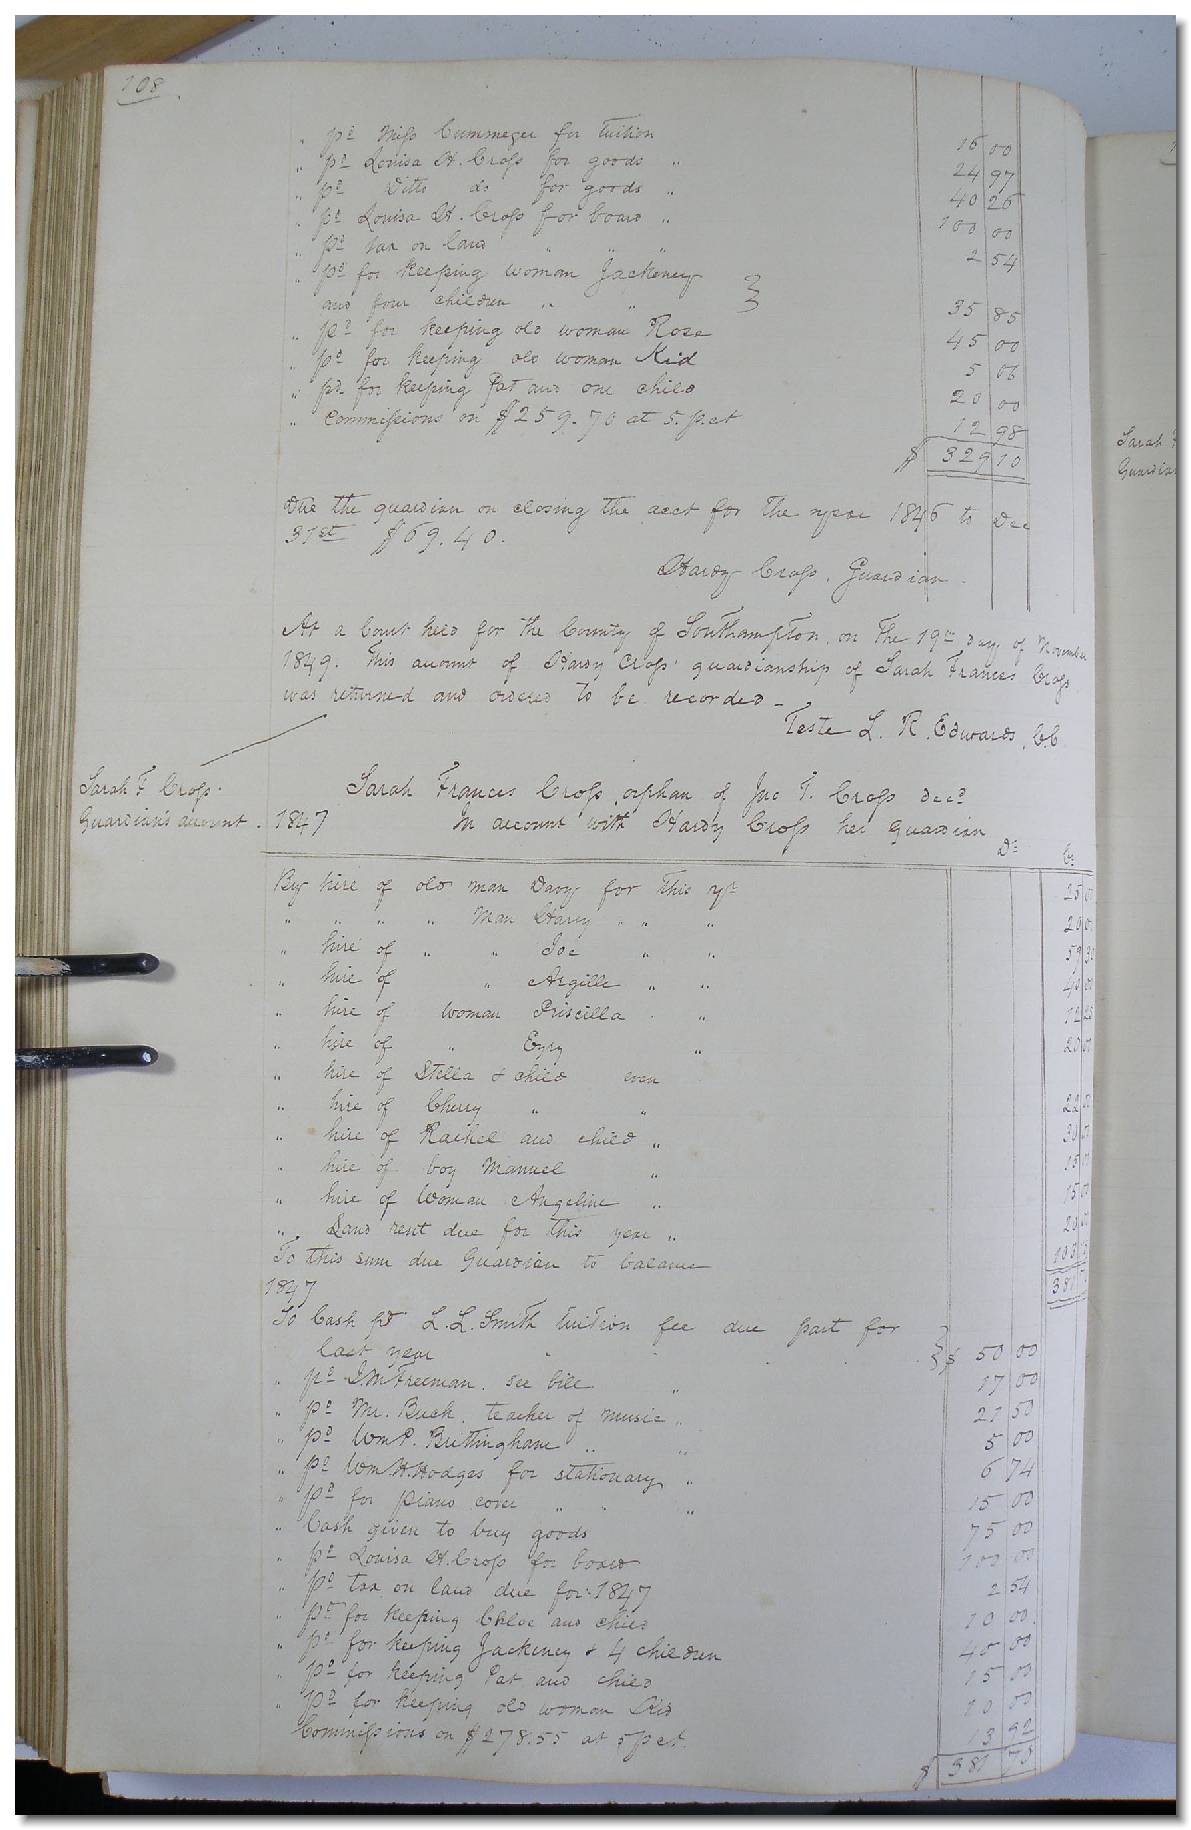 108
" pd Miss Cummeger for tuition 16 00
" pd Louisa H. Cross for goods " 24 97
" pd Ditto do for goods " 40 26
" pd Louisa H. Cross for board " 100 00
" pd tax on land " " " 2 54
" pd for keeping woman Jackeney
and four children " " 35 85
" pd for keeping old woman Rose 45 00
" pd for keeping old woman Kid 5 00
" pd for keeping Pat and one child 20 00
" Commissions on $259.70 at 5. p.ct 12 98
$ 329 10
Due the guardian on closing the acct for the year 1846 to Dec
31st $69.40.
Hardy Cross, Guardian.
At a Court held for the County of Southampton, on the 19th day of November
1849. This account of Hardy Cross' guardianship of Sarah Frances Cross
was returned and ordered to be recorded –
Teste L. R. Edwards, C.C.
Sarah F Cross'
Guardian's account.
Sarah Frances Cross, orphan of Jno T. Cross decd
1847 In account with Hardy Cross her guardian
Dr Cr
By hire of old man Davy for this yr 25
" " " " Man Harry " " " 20
" hire of " " Joe " " 59
" hire of " Argille " " 40 00
" hire of woman Priscilla " " 12 25
" hire of " Egry " 20 00
" hire of Stella & child even
" hire of Cherry " " 22
" hire of Rachel and child " 30
" hire of boy Manuel " 15
" hire of Woman Angeline " 15 00
" Land rent due for this year " 20 00
To this sum due Guardian to balance 103
1847 381
To Cash pd L. L. Smith tuition fee due part for
last year " $ 50 00
" pd J M Freeman. see bill " 17 00
" pd Mr. Buck, teacher of music " 21 50
" pd Wm P. Brittingham " " 5 00
" pd Wm H. Hodges for stationary " 6 74
" pd for piano cover " " " 15 00
" Cash given to buy goods 75 00
" pd Louisa H. Cross for board 100 00
" pd tax on land due for 1847 2 54
" pd for keeping Chloe and child 10 00
" pd for keeping Jackeney & 4 children 40 00
" pd for keeping Pat and child 15 00
" pd for keeping old woman Kid 10 00
Commissions on $278.55 at 5 p ct. 13 92
$ 381 75
Sarah F
Guardian